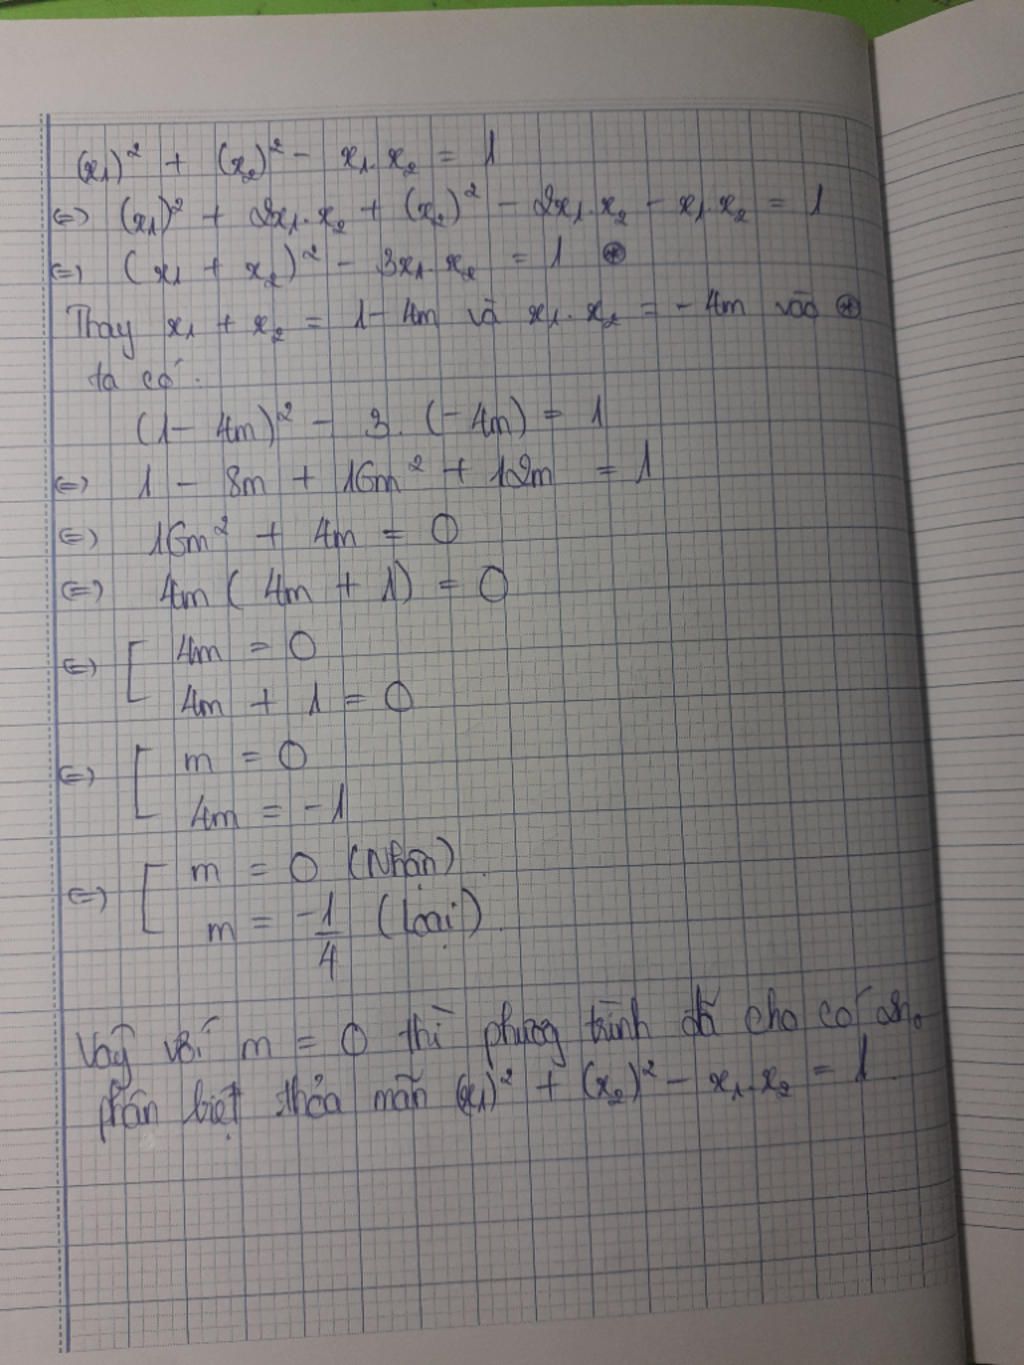 (x₁)² + (x₂)² - x₁.x₂ = 1
⇔ (x₁)² + 2x₁.x₂ + (x₂)² - 2x₁.x₂ - x₁.x₂ = 1
⇔ (x₁ + x₂)² - 3x₁.x₂ = 1 ⊛
Thay x₁ + x₂ = 1 - 4m và x₁.x₂ = -4m vào ⊛
ta có:
(1 - 4m)² - 3.(-4m) = 1
⇔ 1 - 8m + 16m² + 12m = 1
⇔ 16m² + 4m = 0
⇔ 4m(4m + 1) = 0
⇔ [ 4m = 0
4m + 1 = 0
⇔ [ m = 0
4m = -1
⇔ [ m = 0 (Nhận)
m = -1/4 (Loại)
Vậy với m = 0 thì phương trình đã cho có 2n₀
phân biệt thỏa mãn (x₁)² + (x₂)² - x₁.x₂ = 1